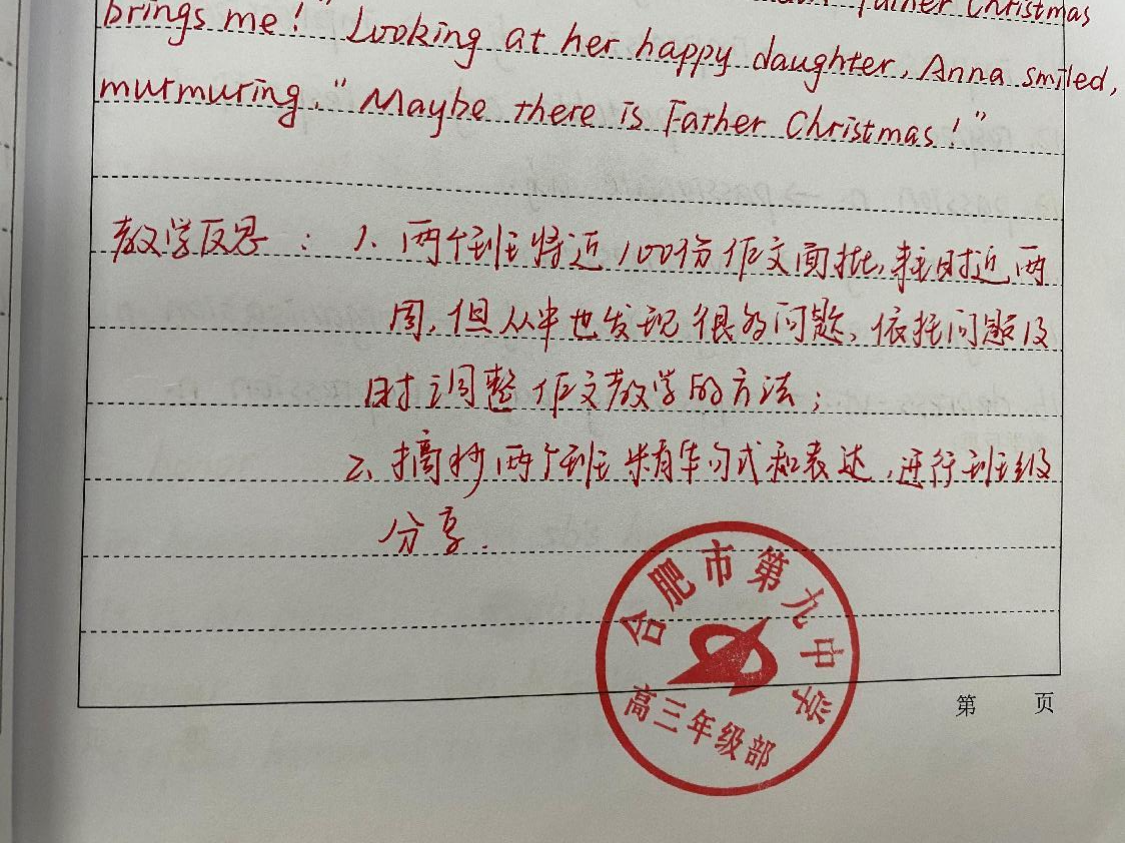 Father Christmas
brings me!" Looking at her happy daughter, Anna smiled,
murmuring, "Maybe there is Father Christmas!"
教学反思: 1. 两个班将近100份作文面批,耗时近两
周,但从中也发现很多问题,依托问题及
时调整作文教学的方法;
2. 摘抄两个班精华句式和表达,进行班级
分享.
合肥市第九中学
高三年级部
第 页